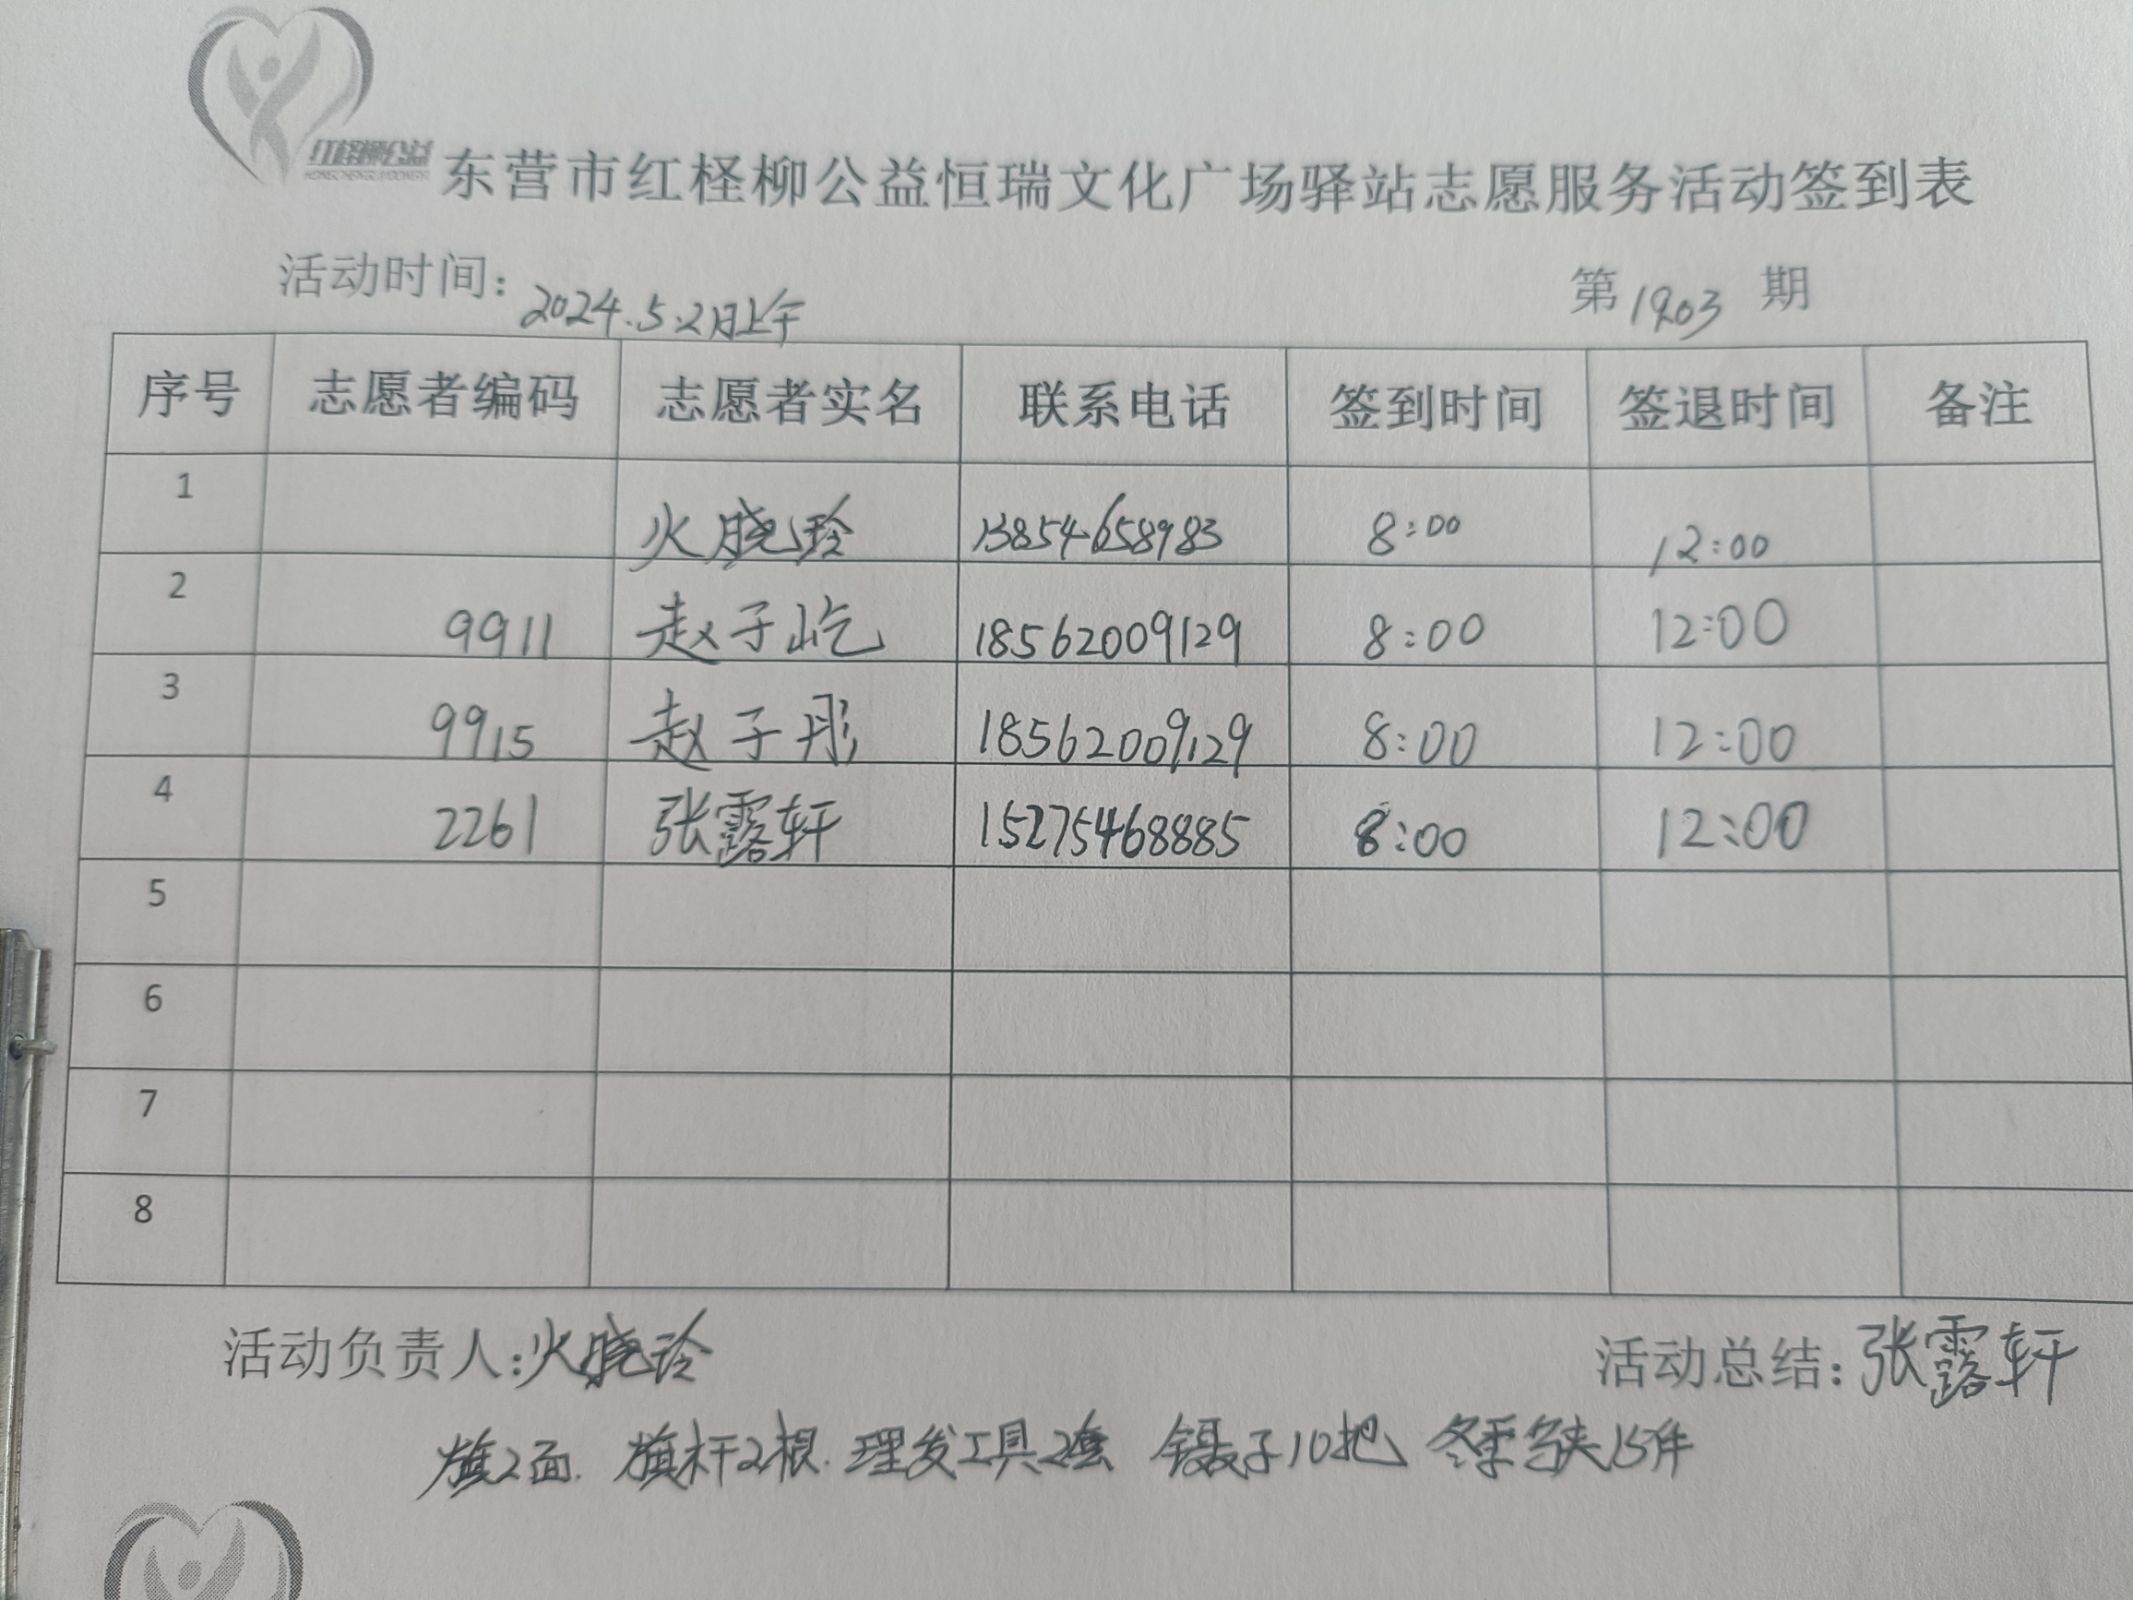 红柽柳公益
东营市红柽柳公益恒瑞文化广场驿站志愿服务活动签到表
活动时间：2024.5.2日上午 第1903期
序号 志愿者编码 志愿者实名 联系电话 签到时间 签退时间 备注
1 火晓玲 13854658983 8:00 12:00
2 9911 赵子屹 18562009129 8:00 12:00
3 9915 赵子彤 18562009129 8:00 12:00
4 2261 张露轩 15275468885 8:00 12:00
5
6
7
8
活动负责人：火晓玲 活动总结：张露轩
旗2面. 旗杆2根. 理发工具2套 镊子10把 冬季马夹15件